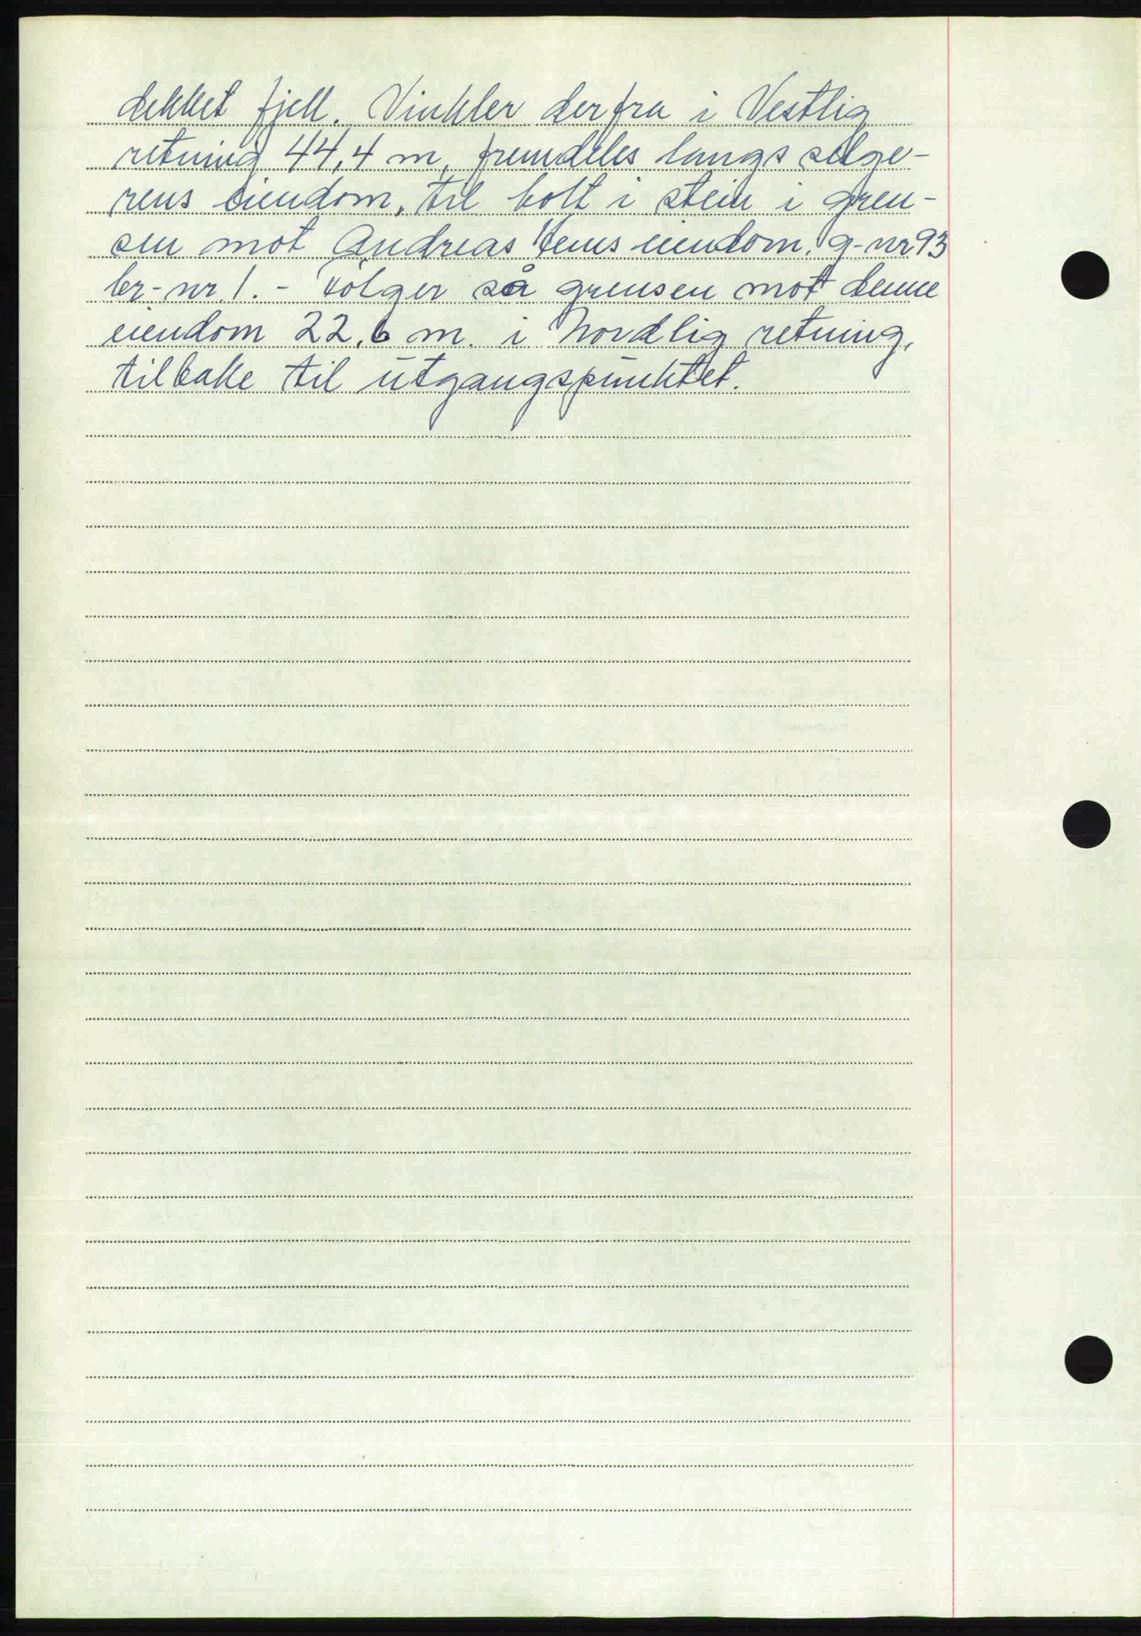 dekket fjell. Vinkler derfra i Vestlig
retning 44,4 m, fremdeles langs selge-
rens eiendom, til bolt i stein i gren-
sen mot Andreas eiendom, g-nr 93
br-nr. 1. - Følger så grensen mot denne
eiendom 22,6 m. i Nordlig retning,
tilbake til utgangspunktet.